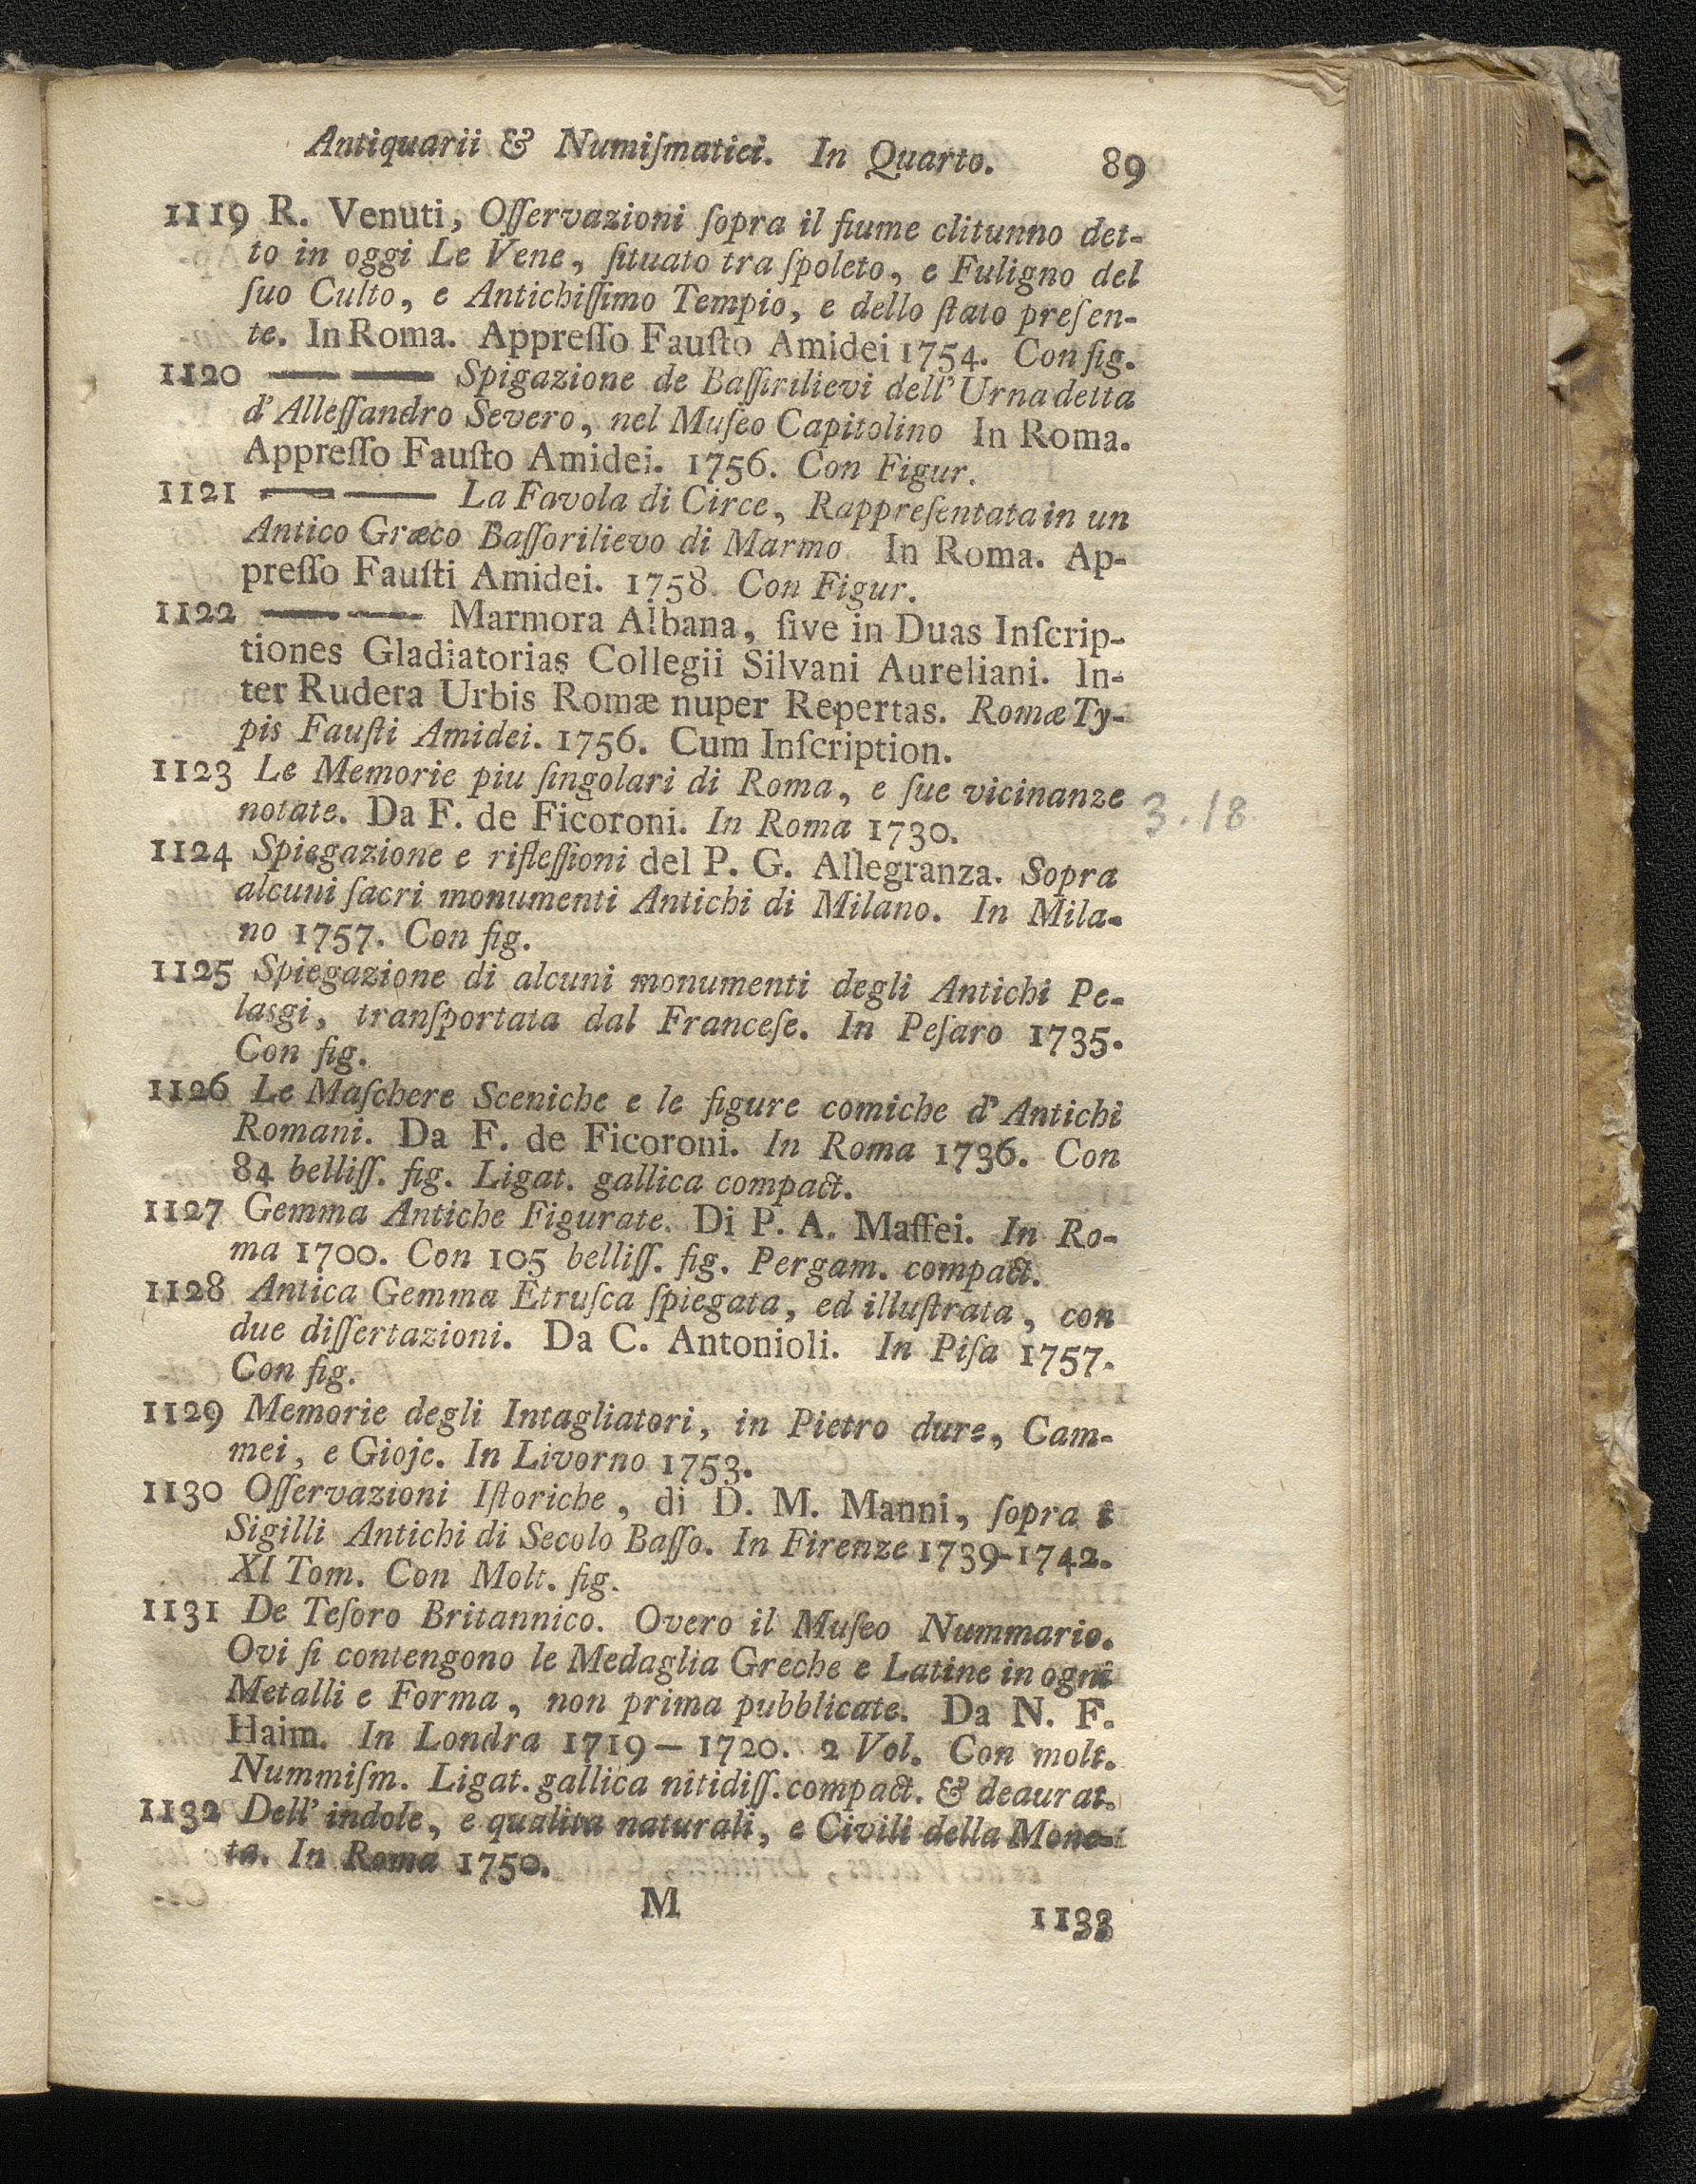 Antiquarii & Numiſmatici. In Quarto. 89
1119 R. Venuti, Oſſervazioni ſopra il fiume clitunno det-
to in oggi Le Vene, ſituato tra ſpoleto, e Fuligno del
ſuo Culto, e Antichiſſimo Tempio, e dello ſtato preſen-
te. In Roma. Appreſſo Fauſto Amidei 1754. Con fig.
1120 —— —— Spigazione de Baſſirilievi dell' Urna detta
d'Alleſſandro Severo, nel Muſeo Capitolino In Roma.
Appreſſo Fauſto Amidei. 1756. Con Figur.
1121 —— —— La Favola di Circe, Rappreſentata in un
Antico Græco Baſſorilievo di Marmo In Roma. Ap-
preſſo Fauſti Amidei. 1758. Con Figur.
1122 —— —— Marmora Albana, ſive in Duas Inſcrip-
tiones Gladiatorias Collegii Silvani Aureliani. In-
ter Rudera Urbis Romæ nuper Repertas. Romæ Ty-
pis Fauſti Amidei. 1756. Cum Inſcription.
1123 Le Memorie piu ſingolari di Roma, e ſue vicinanze 3.18
notate. Da F. de Ficoroni. In Roma 1730.
1124 Spiegazione e rifleſſioni del P. G. Allegranza. Sopra
alcuni ſacri monumenti Antichi di Milano. In Mila-
no 1757. Con fig.
1125 Spiegazione di alcuni monumenti degli Antichi Pe-
lasgi, tranſportata dal Franceſe. In Peſaro 1735.
Con fig.
1126 Le Maſchere Sceniche e le figure comiche d'Antichi
Romani. Da F. de Ficoroni. In Roma 1736. Con
84 belliſſ. fig. Ligat. gallica compact.
1127 Gemma Antiche Figurate. Di P. A. Maffei. In Ro-
ma 1700. Con 105 belliſſ. fig. Pergam. compact.
1128 Antica Gemma Etruſca ſpiegata, ed illuſtrata, con
due diſſertazioni. Da C. Antonioli. In Piſa 1757.
Con fig.
1129 Memorie degli Intagliatori, in Pietro dure, Cam-
mei, e Gioje. In Livorno 1753.
1130 Oſſervazioni Iſtoriche, di D. M. Manni, ſopra i
Sigilli Antichi di Secolo Baſſo. In Firenze 1739-1742.
XI Tom. Con Molt. fig.
1131 De Teſoro Britannico. Overo il Muſeo Nummario.
Ovi ſi contengono le Medaglia Greche e Latine in ogni
Metalli e Forma, non prima pubblicate. Da N. F.
Haim. In Londra 1719 — 1720. 2 Vol. Con molt.
Nummiſm. Ligat. gallica nitidiſſ. compact. & deaurat.
1132 Dell' indole, e qualita naturali, e Civili della Mone-
ta. In Roma 1750.
M 1133